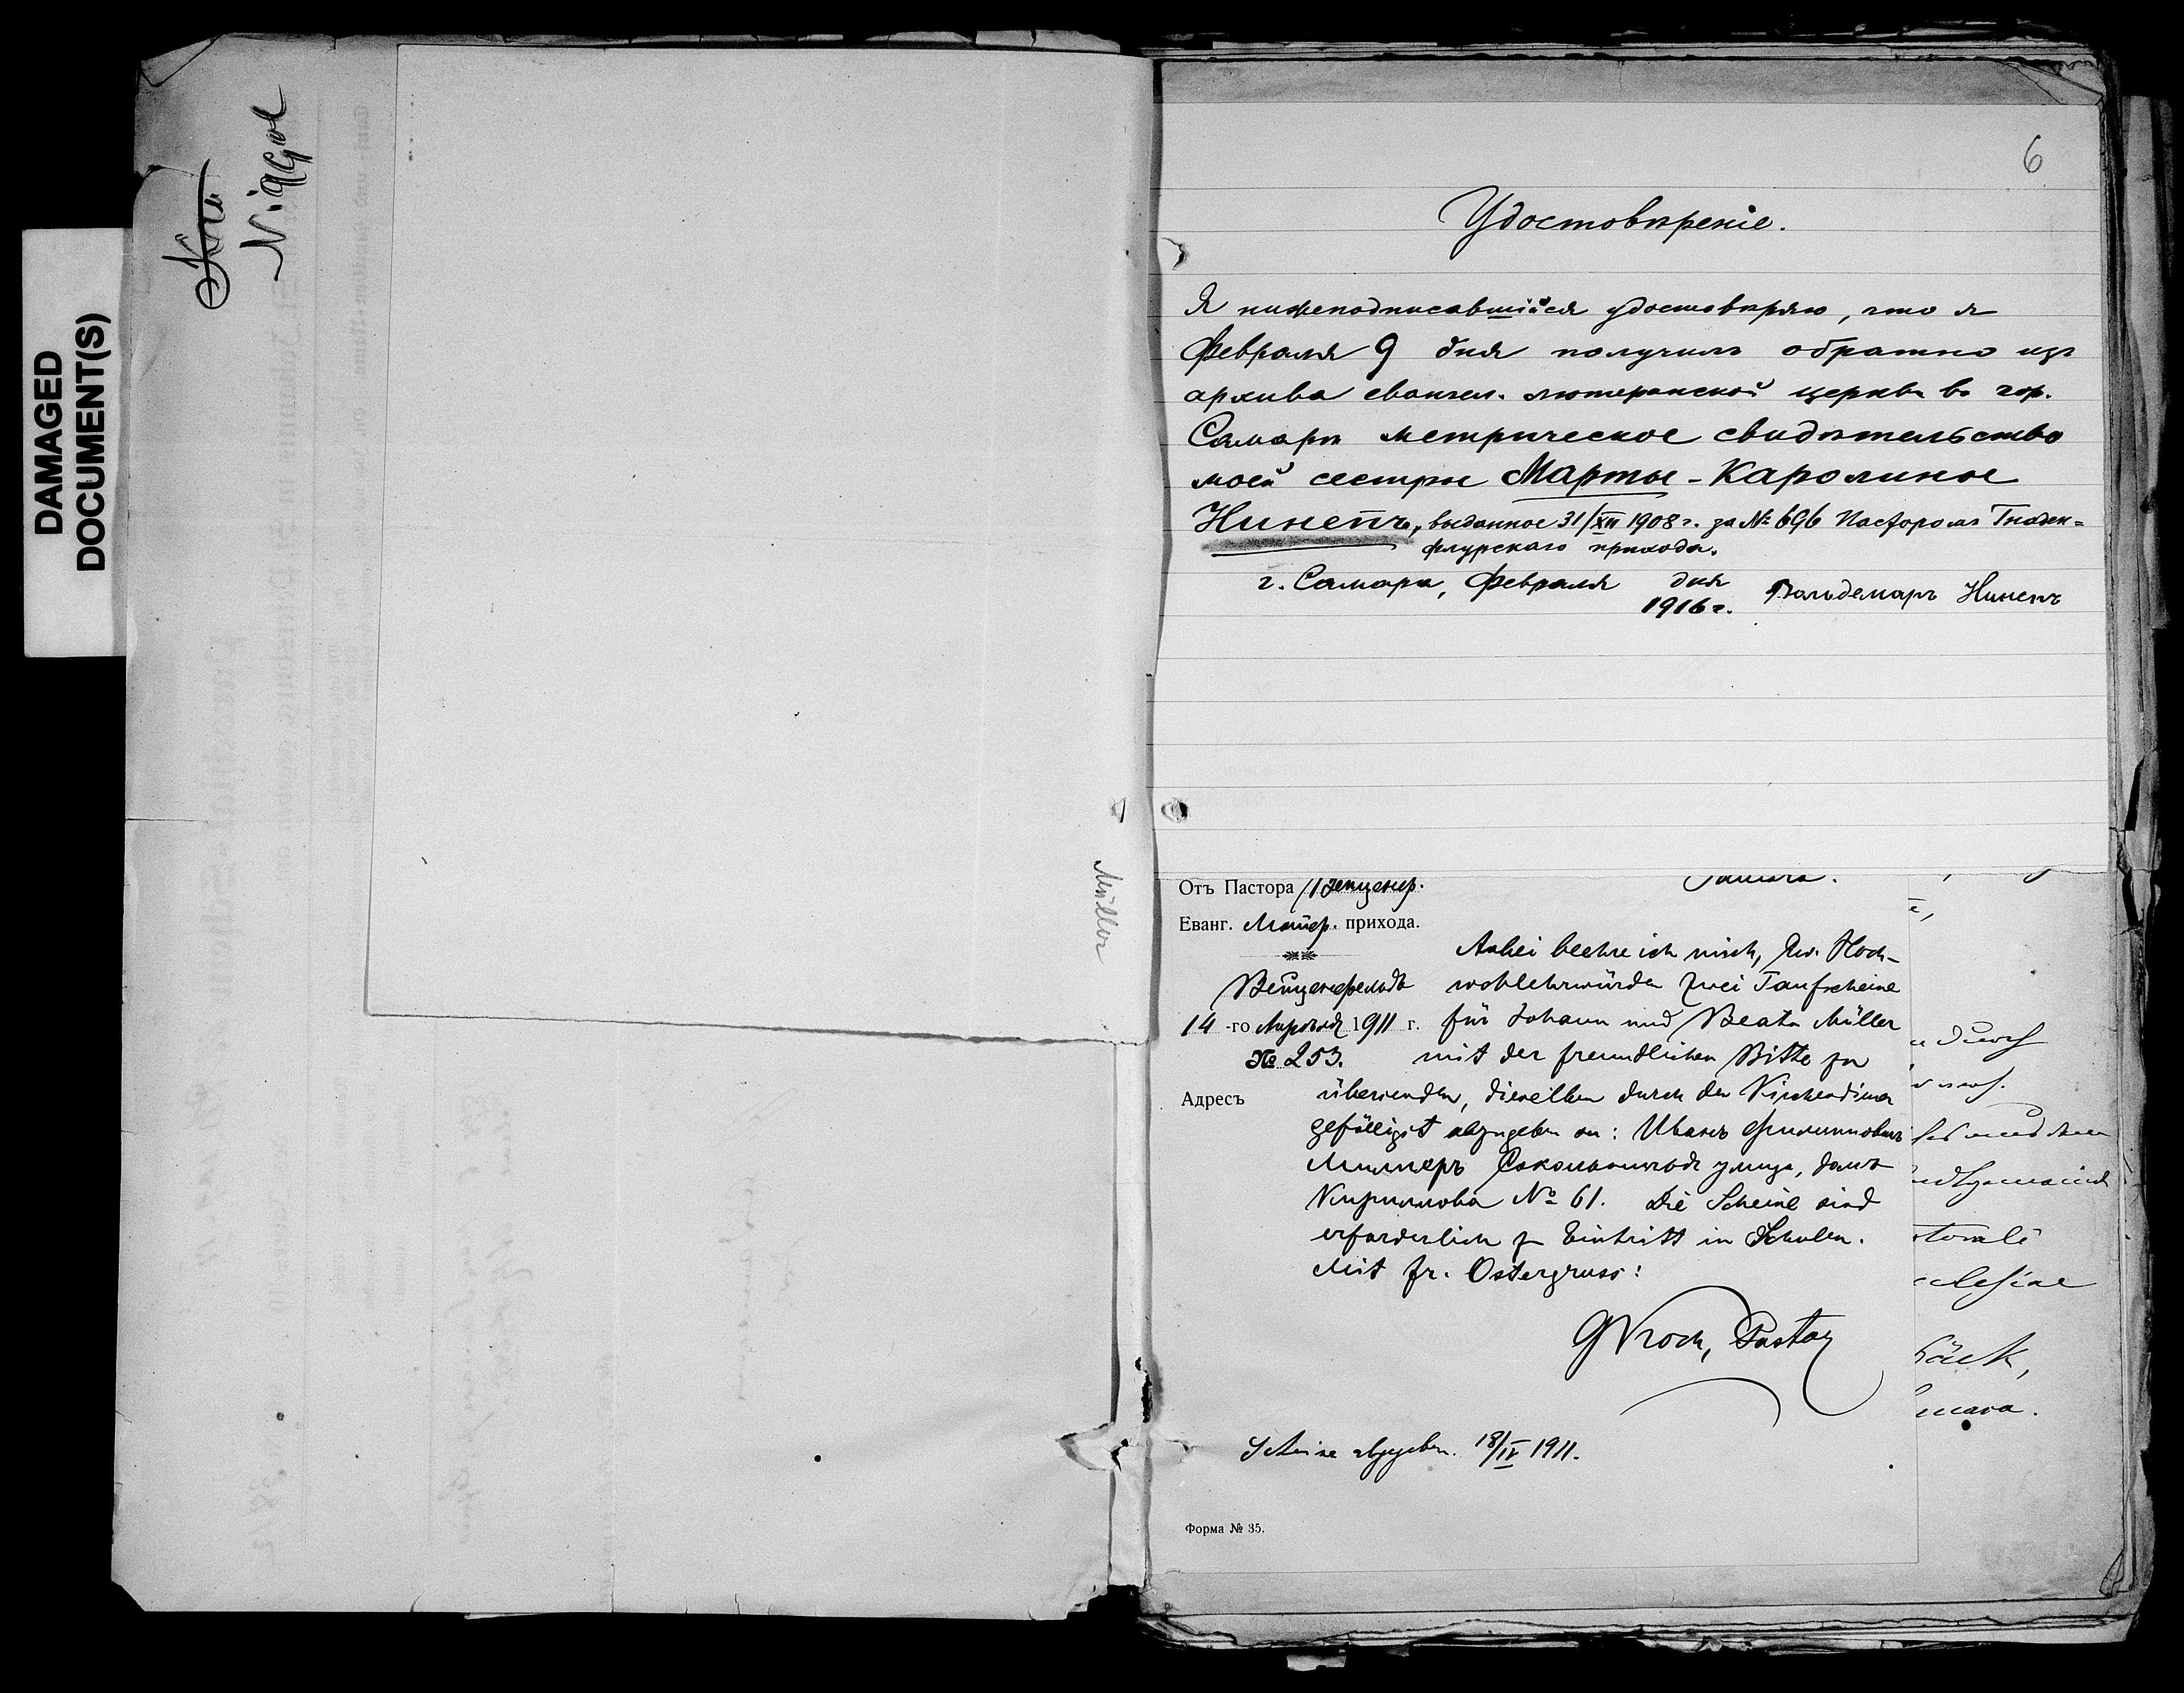 DAMAGED
DOCUMENT(S)
Müller
6
Удостовѣреніе.
Я нижеподписавшійся удостовѣряю, что я
Февраля 9 дня получилъ обратно изъ
архива евангел. лютеранской церкви въ гор.
Самарѣ метрическое свидѣтельство
моей сестры Марты-Каролины
Нинепъ, выданное 31/XII 1908 г. за № 696 Пасторомъ Гнаден=
флурскаго прихода.
г. Самара, Февраля дня
1916 г. Вольдемаръ Нинепъ
Отъ Пастора
Еванг. Лютер. прихода.
Anbei beehre ich mich, Ew. Hoch-
wohlehrwürden zwei Taufscheine
14-го Апрѣля 1911 г. für Johann und Beata Müller
№ 253. mit der freundlichen Bitte zu
Адресъ übersenden, dieselben durch den Kirchendiener
gefälligst abzugeben an: Иванъ Филипповичъ
Миллеръ Сокольничья улица, домъ
Кириллова № 61. Die Scheine sind
erforderlich zu Eintritt in Schulen.
Mit fr. Ostergruss:
Pastor
Scheine abgegeben. 18/IV 1911.
Форма № 35.
durch